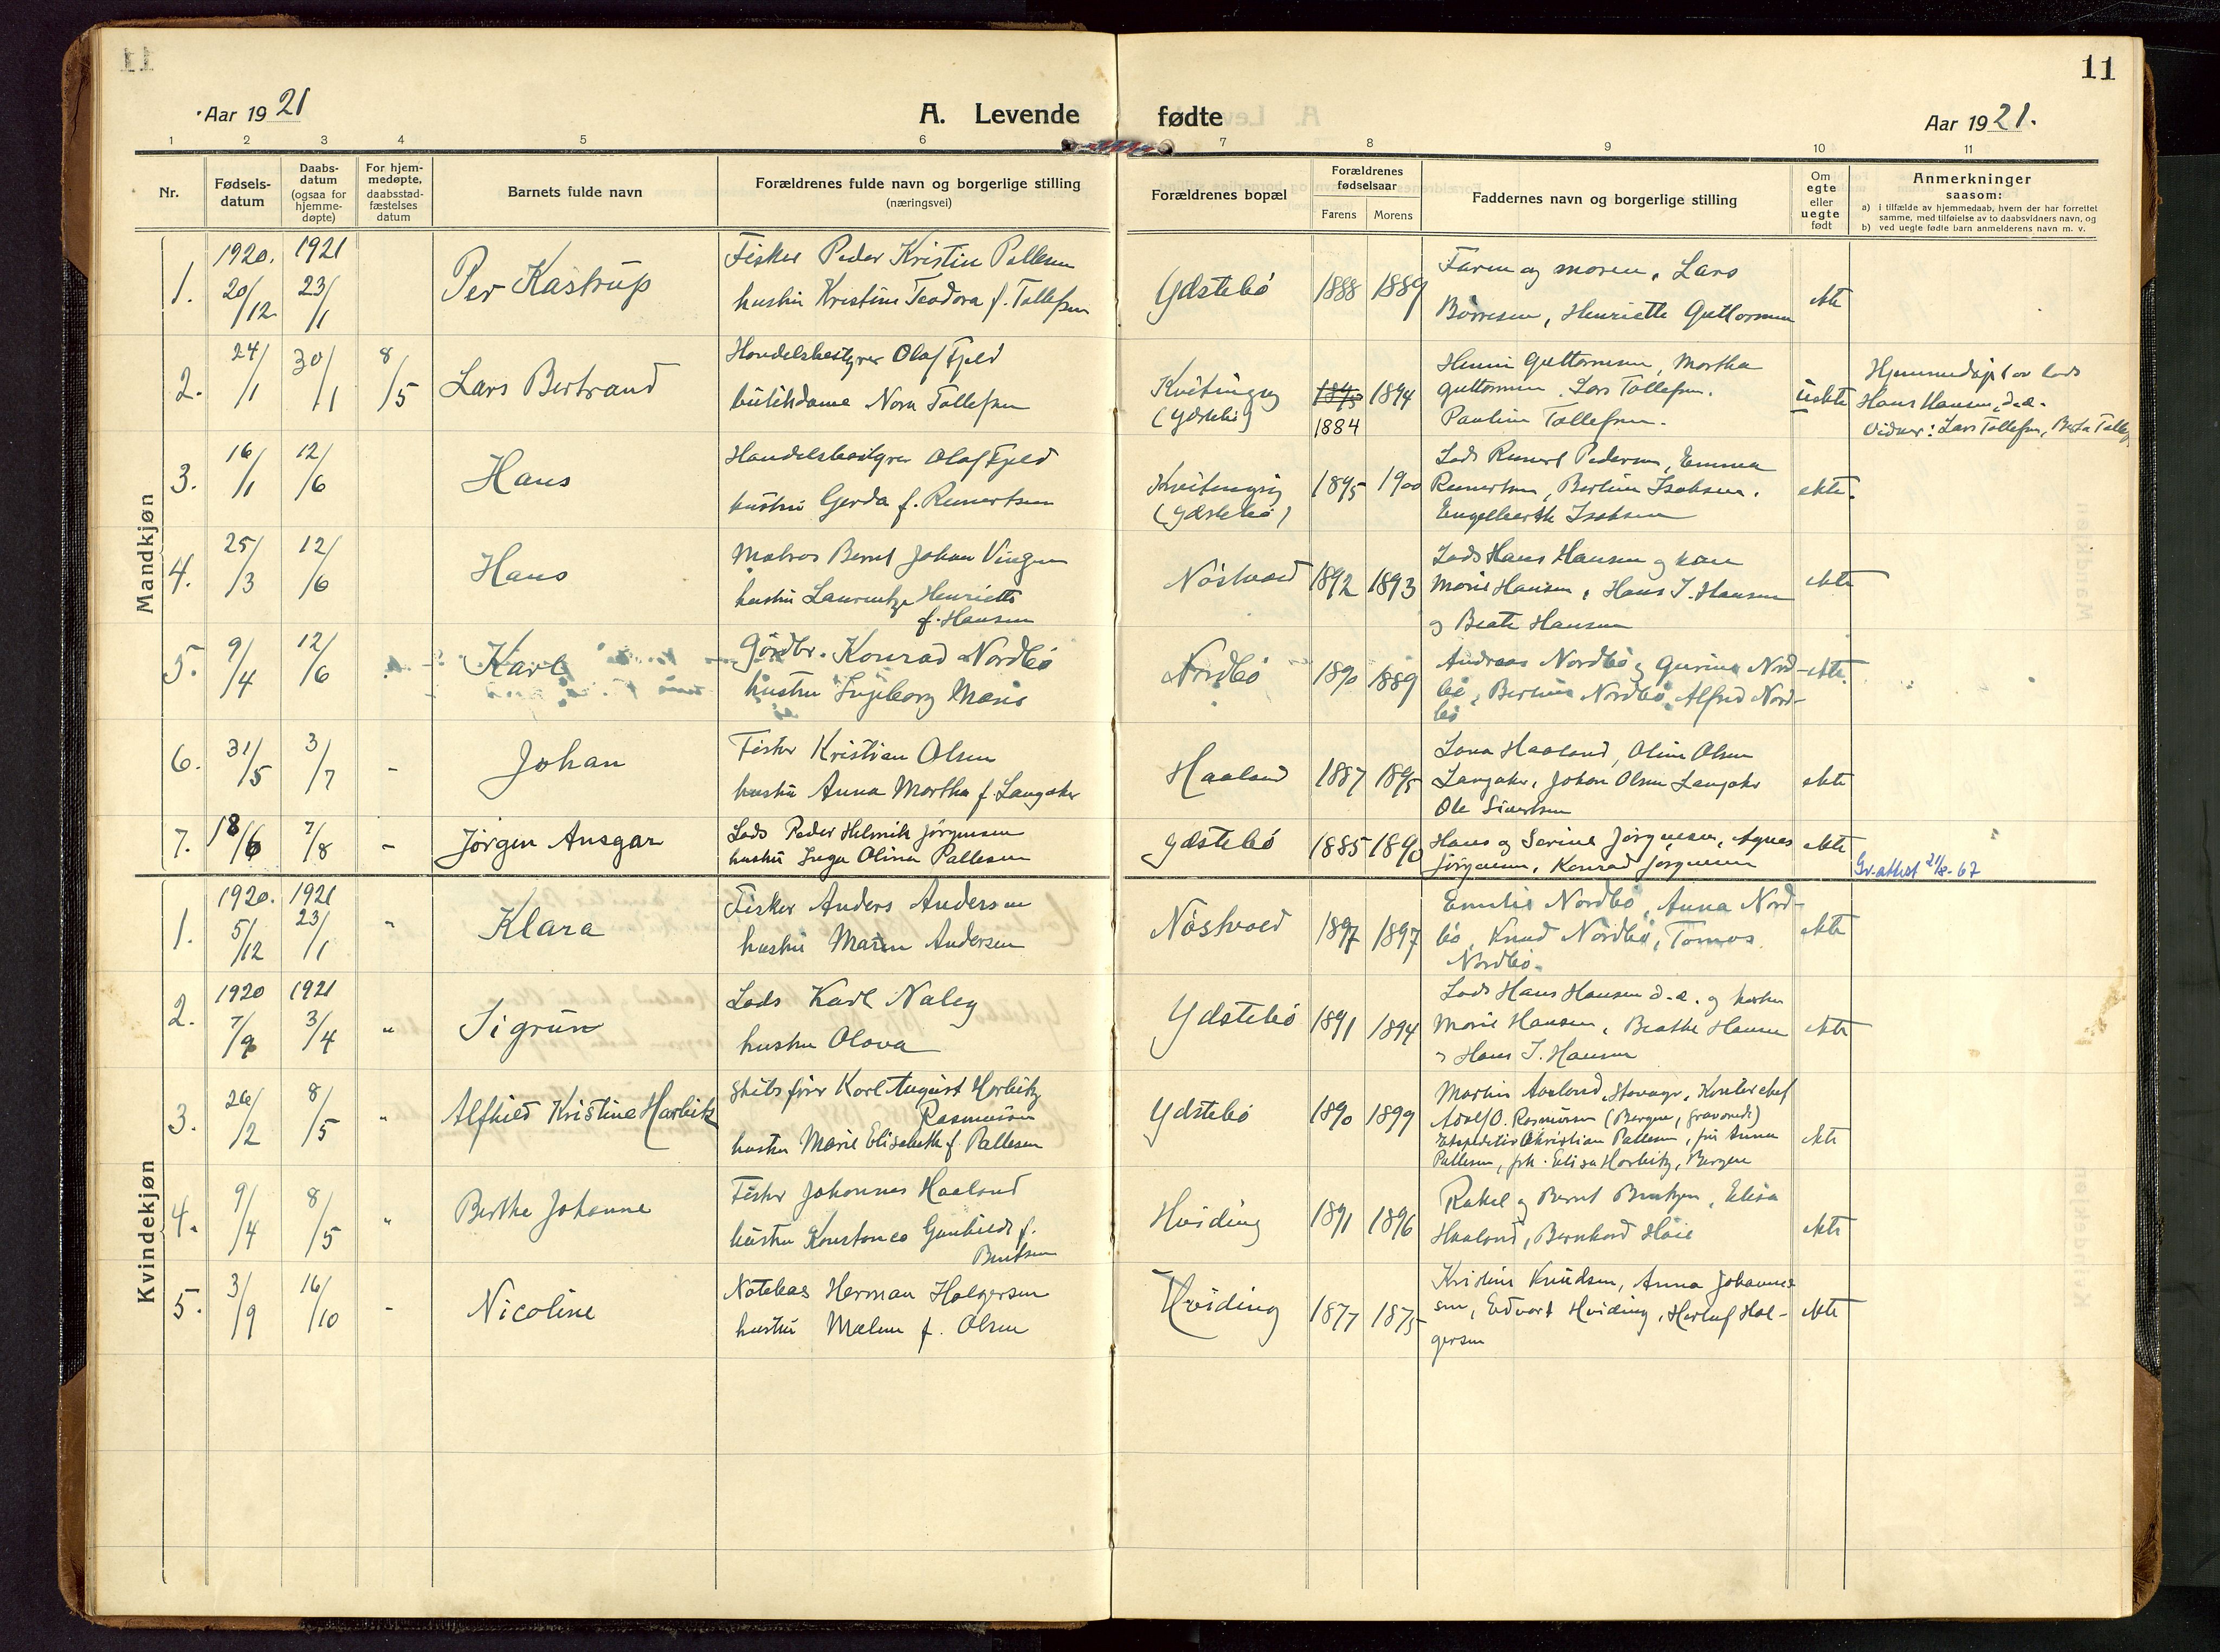 11
11
Aar 1921
A. Levende
fødte
Aar 1921.
1 2 3 4 5 6 7 8 9 10 11
Nr.
Fødsels-
datum
Daabs-
datum
(ogsaa for
hjemme-
døpte)
For hjem-
medøpte,
daabsstad-
fæstelses
datum
Barnets fulde navn
Forældrenes fulde navn og borgerlige stilling
(næringsvei)
Forældrenes bopæl
Forældrenes
fødselsaar
Farens Morens
Faddernes navn og borgerlige stilling
Om
egte
eller
uegte
født
Anmerkninger
saasom:
a) i tilfælde av hjemmedaab, hvem der har forrettet
samme, med tilføielse av to daabsvidners navn, og
b) ved uegte fødte barn anmelderens navn m. v.
Mandkjøn
1. 1920. 20/12 1921 23/1
Per Kastrup
Fisker Peder Kristin Pallesen
hustru Kristine Teodora f. Tollefsen
Ydstebö 1888 1889
Faren og moren, Lars
Börresen, Henriette Guttormsen
ekte
2. 24/1 30/1 8/5
Lars Bertrand
Handelsbestyrer Olaf Fjeld
butikdame Nora Tollefsen
Kvitingsøy
(Ydstebö)
1895 1894
1884
Henni Guttormsen, Martha
Guttormsen. Lars Tollefsen.
Pauline Tollefsen.
uekte
Hjemmedøpt av lods
Hans Hansen, d.e.
Vidner: Lars Tollefsen, Berta Tollefs
3. 16/1 12/6
Hans
Handelsbestyrer Olaf Fjeld
hustru Gerda f. Reinertsen
Kvitingsøy
(Ydstebö)
1895 1900
Lods Reinert Pedersen, Emma
Reinertsen, Bertine Isaksen.
Engelbarth Isaksen
ekte.
4. 25/3 12/6
Hans
Matros Bernt Johan Vingen
hustru Laurentze Henriette
f. Hansen
Nöstvold 1892 1893
Lods Hans Hansen og kone
Marie Hansen, Hans J. Hansen
og Beate Hansen
ekte
5. 9/4 12/6
Karl
Gårdbr. Konrad Nordbö
hustru Ingeborg Marie
Nordbö 1890 1889
Andreas Nordbö og Gurine Nord-
bö, Bertine Nordbö, Alfred Nord-
bö
ekte.
6. 31/5 3/7 -
Johan
Fisker Kristian Olsen
hustru Anna Martha f. Langaker
Haaland 1887 1895
Lava Haaland, Oline Olsen
Langaker, Johan Olsen Langaker
Ole Sivertsen
ekte
7. 18/6 7/8 -
Jörgen Ansgar
Lods Peder Helmik Jörgensen
hustru Inga Olina Pallesen
Ydstebö 1885 1890
Hans og Serine Jörgensen, Agnes
Jörgensen, Konrad Jörgensen
ekte
Gv. attest 21/8-67
Kvindekjøn
1. 1920. 5/12 1921 23/1 "
Klara
Fisker Anders Andersen
hustru Maren Andersen
Nöstvold 1897 1897
Emilie Nordbö, Anna Nord-
bö, Knud Nordbö, Tomas
Nordbö.
ekte
2. 1920 7/9 1921 3/4 "
Sigrun
Lods Karl Naley
hustru Olava
Ydstebö 1891 1894
Lods Hans Hansen d.e. og hustru
Marie Hansen, Beathe Hansen
og Hans J. Hansen
ekte
3. 26/2 8/5 "
Alfhild Kristine Harbitz
Skibsfører Karl August Harbitz
Rasmussen
hustru Marie Elisabeth f. Pallesen
Ydstebö 1890 1899
Martin Aaland, Stavanger, Kontorchef
Adolf O. Rasmussen (Bergen, fraværende)
Ekspeditör Christian Pallesen, fru Anna
Pallesen, frk. Elisa Harbitz, Bergen
ekte
4. 9/4 8/5 "
Berthe Johanne
Fisker Johannes Haaland
hustru Konstance Gunhilde f.
Bentsen
Hviding 1891 1896
Rakel og Bernt Bentzen, Elisa
Haaland, Bernhard Höie
ekte
5. 3/9 16/10 -
Nicoline
Notebas Herman Holgersen
hustru Malene f. Olsen
Hviding 1877 1875
Kristine Knudsen, Anna Johannes-
sen, Edvart Hviding, Herluf Hol-
gersen
ekte